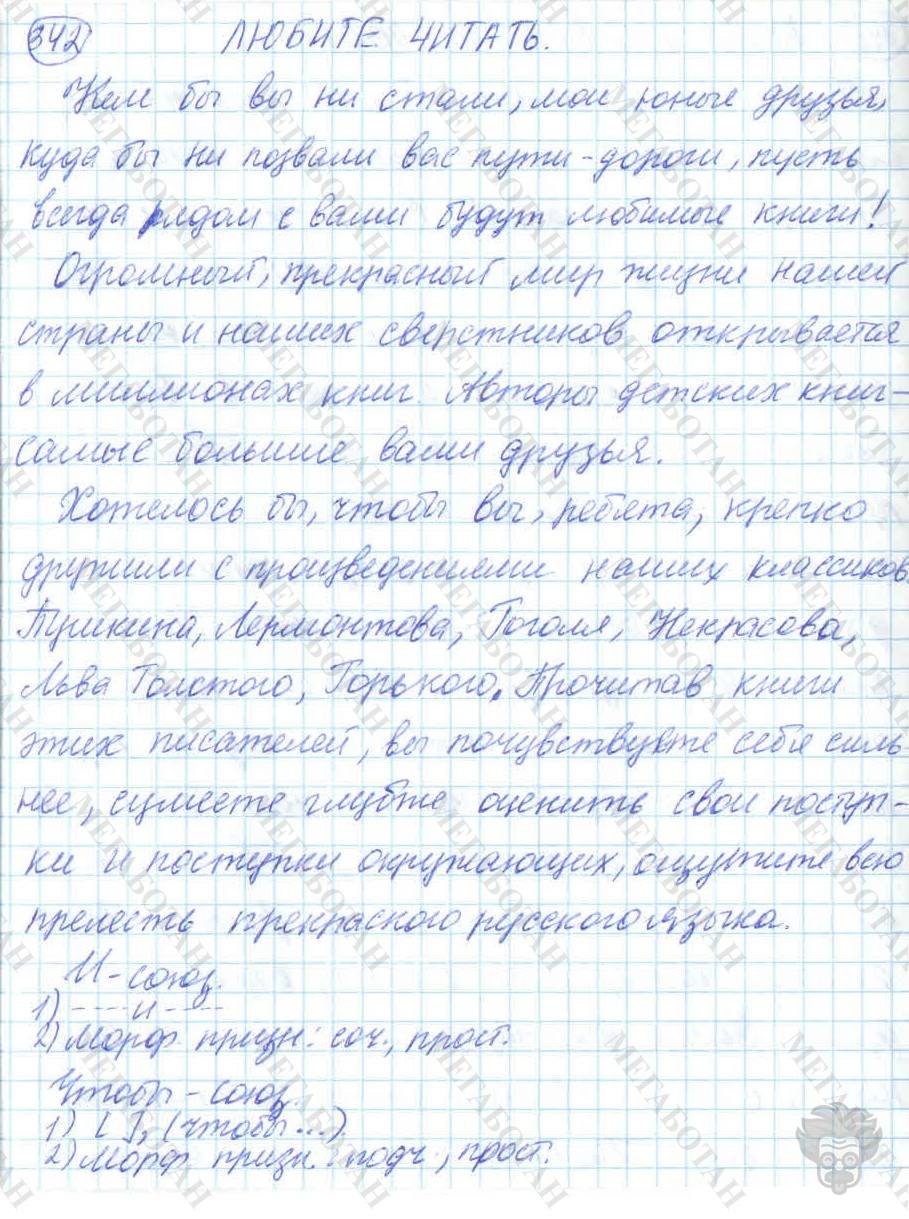 342 ЛЮБИТЕ ЧИТАТЬ.
Кем бы вы ни стали, мои юные друзья,
куда бы ни позвали вас пути-дороги, пусть
всегда рядом с вами будут любимые книги!
Огромный, прекрасный мир жизни нашей
страны и наших сверстников открывается
в миллионах книг. Авторы детских книг-
самые большие ваши друзья.
Хотелось бы, чтобы вы, ребята, крепко
дружили с произведениями наших классиков
Пушкина, Лермонтова, Гоголя, Некрасова,
Льва Толстого, Горького. Прочитав книги
этих писателей, вы почувствуете себя силь-
нее, сумеете глубже оценить свои поступ-
ки и поступки окружающих, ощутите всю
прелесть прекрасного русского языка.
И-союз.
1) ----и----
2) Морф призн: соч., прост.
Чтобы-союз.
1) [ ], (чтобы...)
2) Морф призн. подч., прост.
МЕГАБОТАН